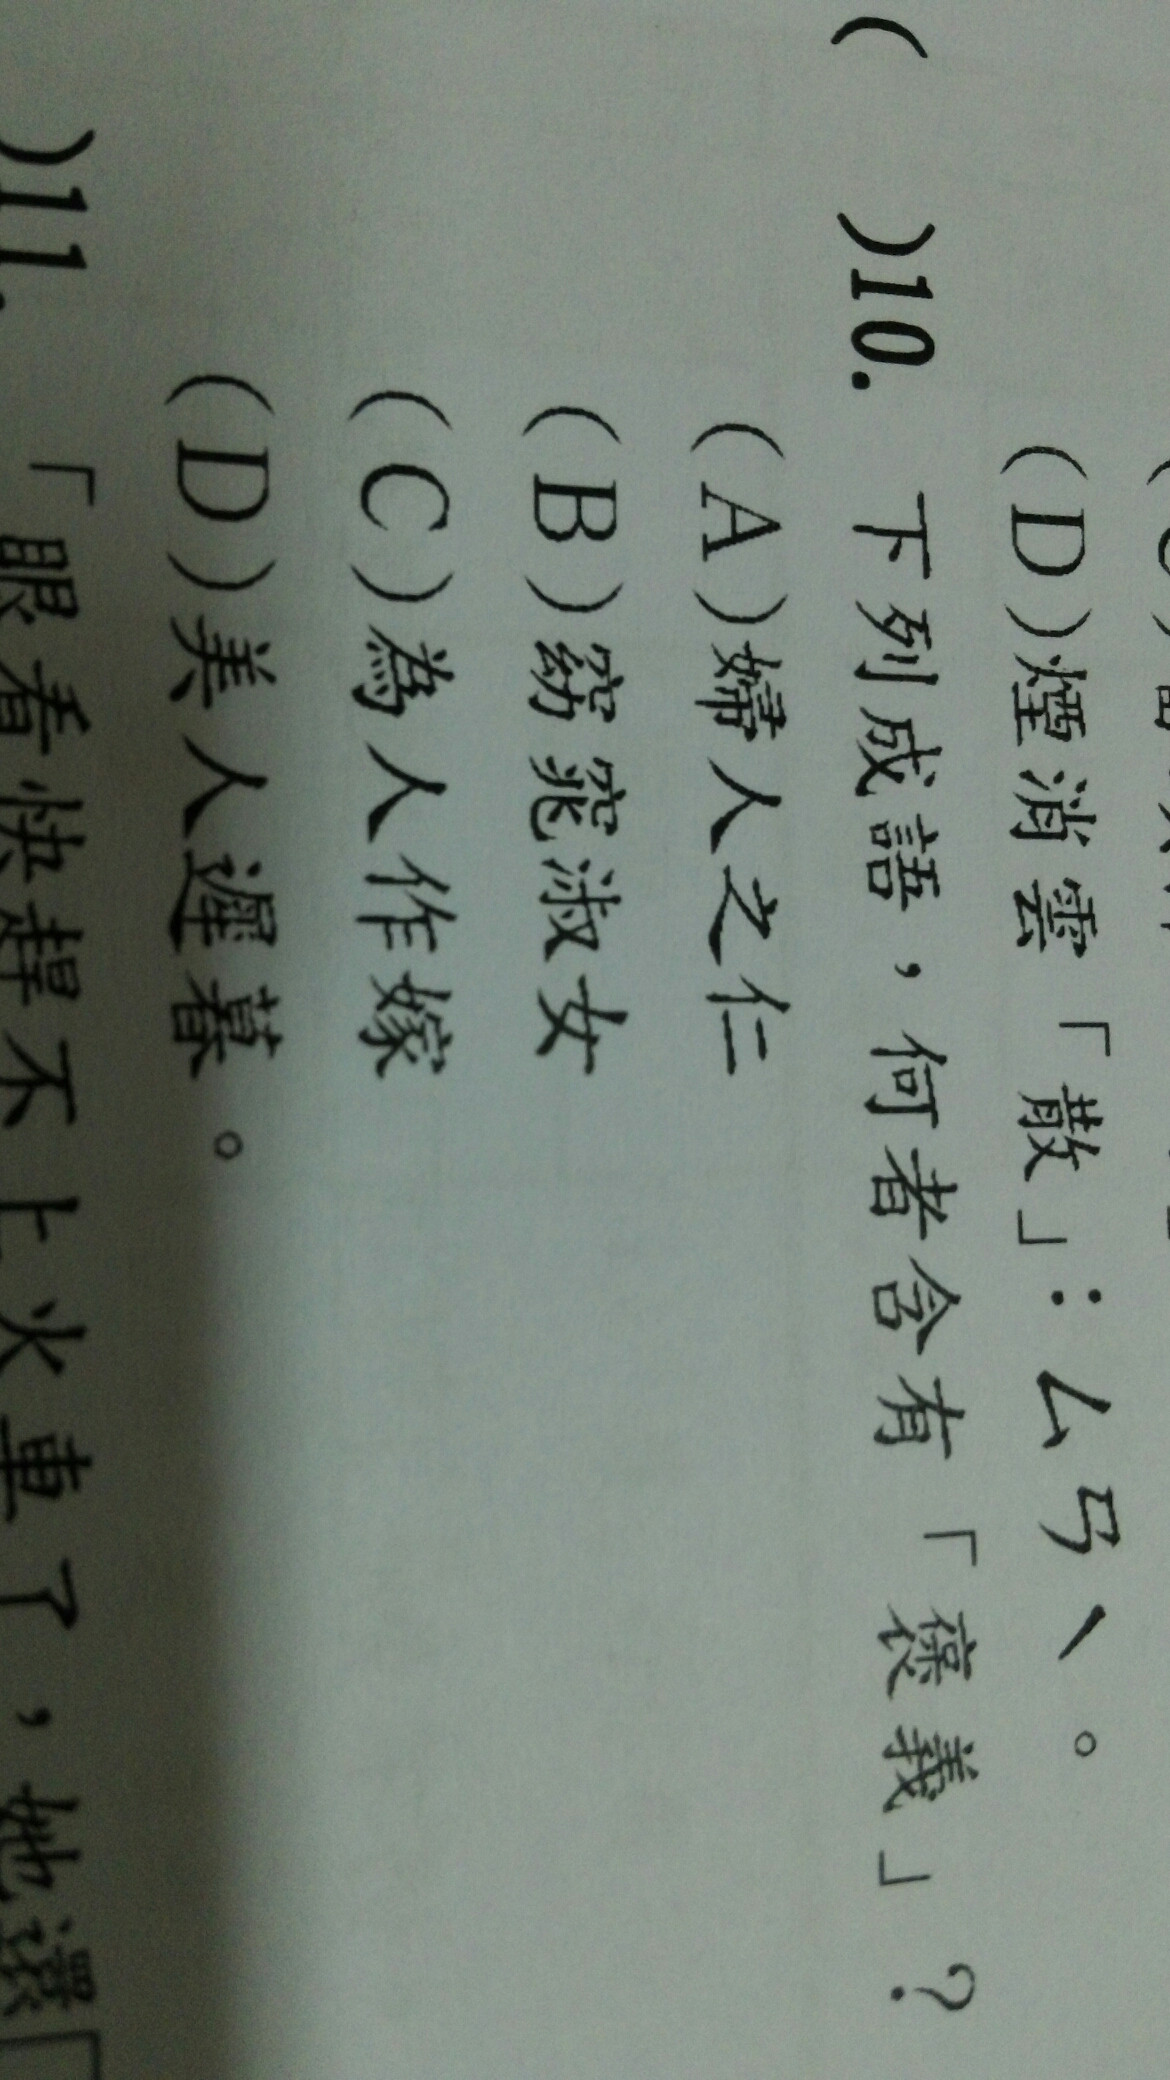 (D)煙消雲「散」：ㄙㄢˋ。
(  )10. 下列成語，何者含有「褒義」？
(A)婦人之仁
(B)窈窕淑女
(C)為人作嫁
(D)美人遲暮。
)11. 「眼看快趕不上火車了，她還